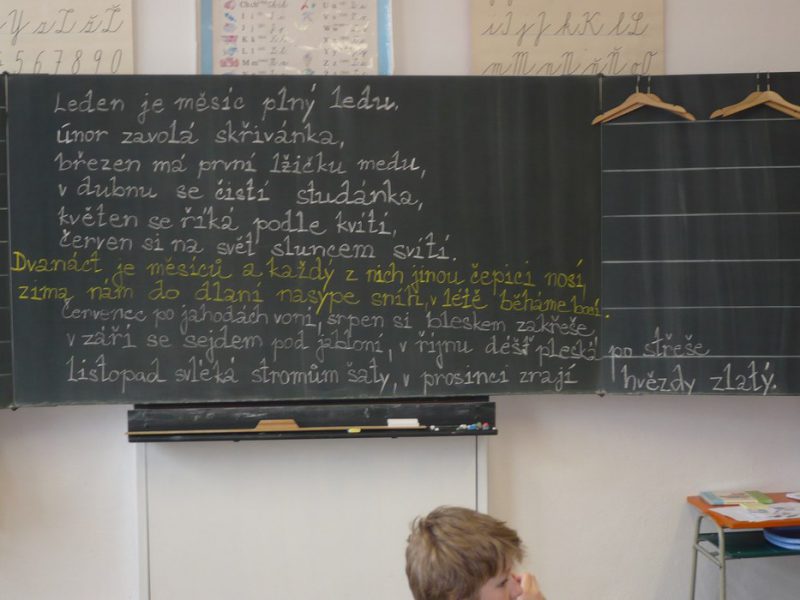 Y y Z z Ž ž
5 6 7 8 9 0
i I j J k K l L
m M n N ň Ň o O
Leden je měsíc plný ledu,
únor zavolá skřivánka,
březen má první lžičku medu,
v dubnu se čistí studánka,
květen se říká podle kvítí,
červen si na svět sluncem svítí.
Dvanáct je měsíců a každý z nich jinou čepici nosí,
zima nám do dlaní nasype sníh, v létě běháme bosí.
červenec po jahodách voní, srpen si bleskem zakřeše,
v září se sejdem pod jabloní, v říjnu déšť pleská po střeše
listopad svléká stromům šaty, v prosinci zrají hvězdy zlatý.